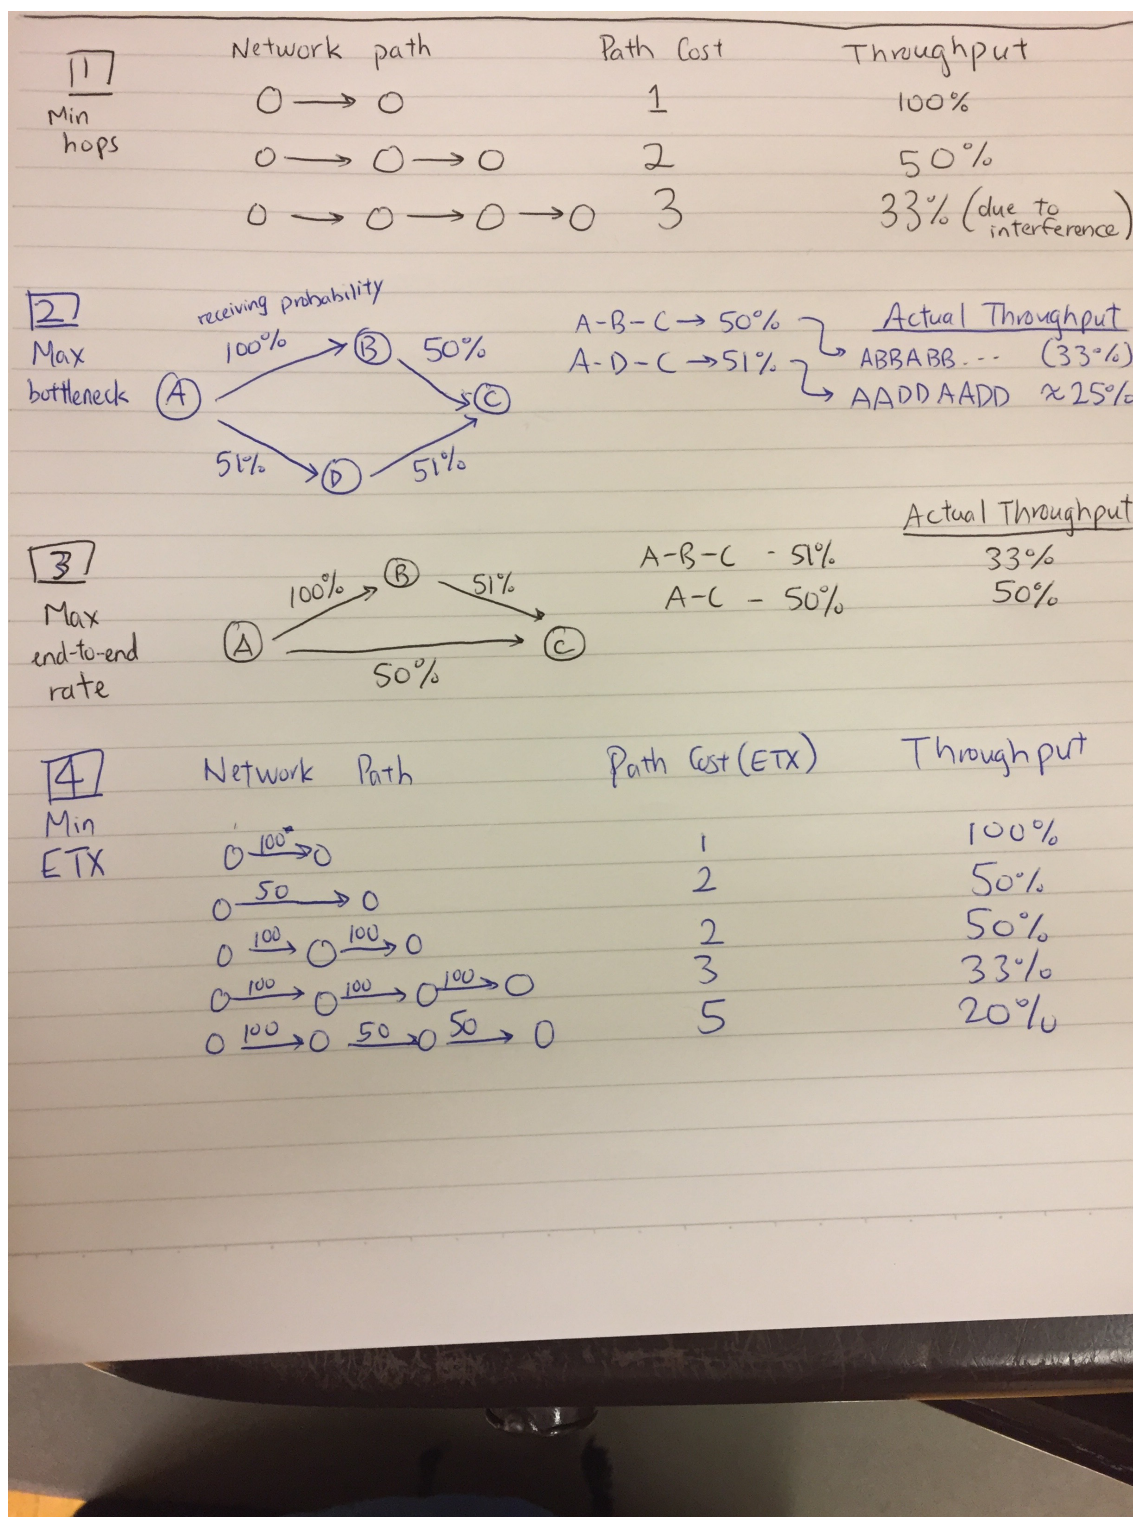 1 Network path Path Cost Throughput
Min hops
O → O 1 100%
O → O → O 2 50%
O → O → O → O 3 33% (due to interference)
2 Max bottleneck
receiving probability
100% B 50%
A C
51% D 51%
A-B-C → 50%
A-D-C → 51%
Actual Throughput
ABBABB... (33%)
AADDAADD ≈25%
3 Max end-to-end rate
100% B 51%
A C
50%
Actual Throughput
A-B-C - 51% 33%
A-C - 50% 50%
4 Network Path Path Cost (ETX) Throughput
Min ETX
O 100 → O 1 100%
O 50 → O 2 50%
O 100 → O 100 → O 2 50%
O 100 → O 100 → O 100 → O 3 33%
O 100 → O 50 → O 50 → O 5 20%